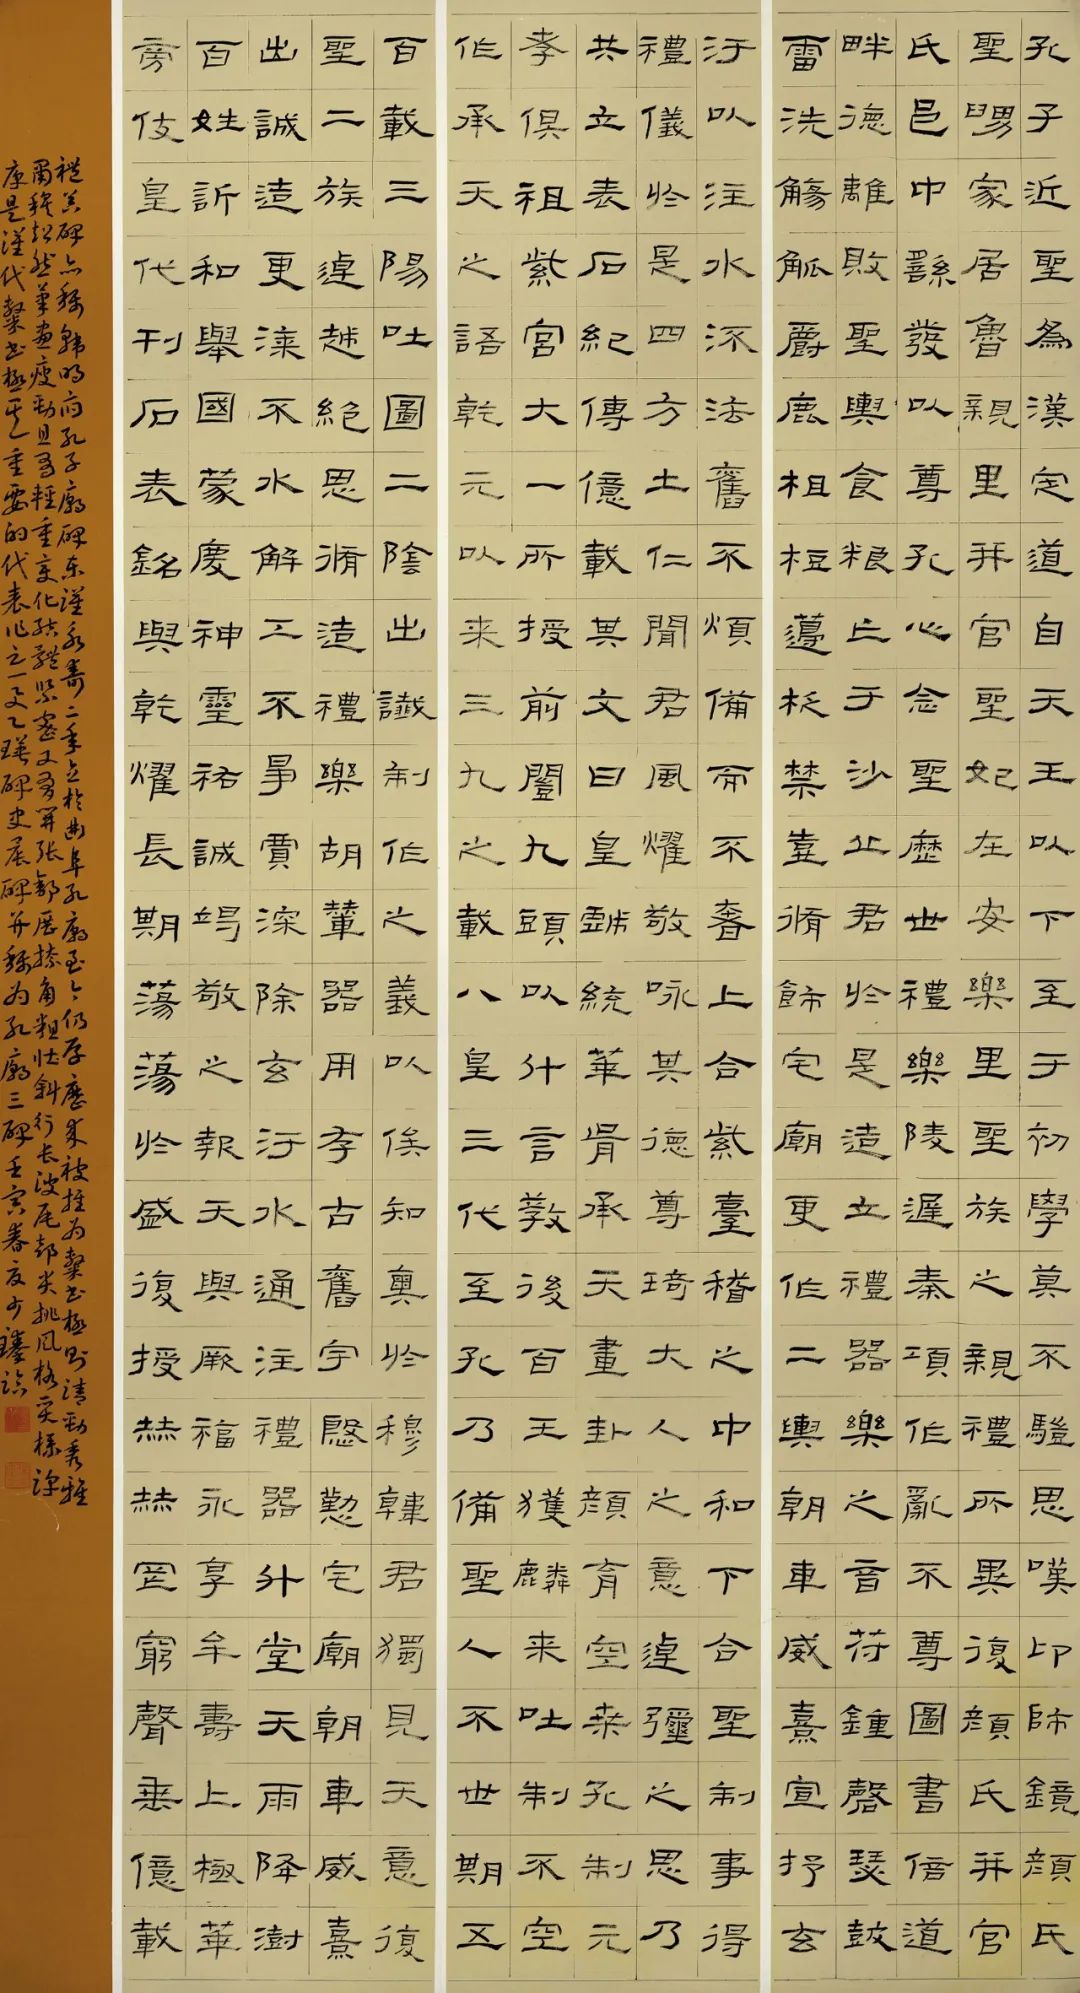 孔子近聖為漢定道自天王以下至于初學莫不驥思嘆卬師鏡顏氏
聖舅家居魯親里并官聖妃在安樂里聖族之親禮所異復顏氏并官
氏邑中繇發以尊孔心念聖歷世禮樂陵遲秦項作亂不尊圖書倍道
畔德離敗聖輿食粮亡于沙丘君於是造立禮器樂之音符鍾磬瑟鼓
雷洗觴觚爵鹿柤梪籩柉禁壺脩飾宅廟更作二輿朝車威熹宣抒玄
汙以注水流法舊不煩備而不奢上合紫臺稽之中和下合聖制事得
禮儀於是四方土仁聞君風燿敬咏其德尊琦大人之意逴彌之思乃
共立表石紀傳億載其文曰皇戲統華胥承天畫卦顏育空桑孔制元
孝俱祖紫宮大一所授前闓九頭以什言教後百王獲麟来吐制不空
作承天之語乾元以来三九之載八皇三代至孔乃備聖人不世期五
百載三陽吐圖二陰出讖制作之義以俟知奧於穆韓君獨見天意復
聖二族逴越絕思脩造禮樂胡輦器用存古舊宇慇懃宅廟朝車威熹
出誠造更漆不水解工不爭賈深除玄汙水通注禮器升堂天雨降澍
百姓訢和舉國蒙慶神靈祐誠竭敬之報天與厥福永享牟壽上極華
旁伎皇代刊石表銘與乾燿長期蕩蕩於盛復授赫赫罔窮聲垂億載
禮器碑亦稱韓明府孔子廟碑東漢永壽二年立於曲阜孔廟至今仍存歷來被推為隸書極則清勁秀雅
肅穆超然筆畫瘦勁且有輕重變化結體緊密又有開張舒展捺角粗壯斜行長波尾部尖挑風格奕樣
康是漢代隸書極其重要的代表作之一又乙瑛碑史晨碑并稱為孔廟三碑壬寅春